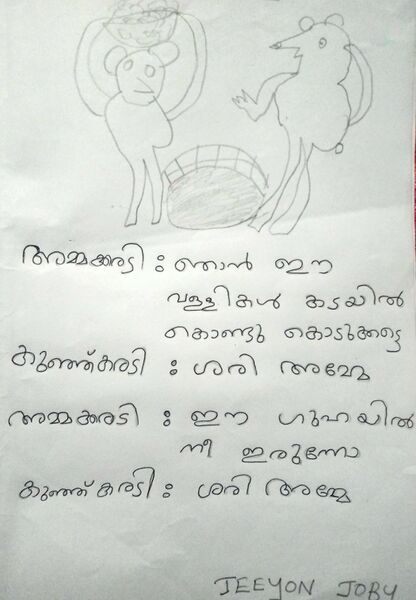 അമ്മക്കരടി : ഞാൻ ഈ
വള്ളികൾ കടയിൽ
കൊണ്ടു കൊടുക്കട്ടെ
കുഞ്ഞ്കരടി : ശരി അമ്മേ
അമ്മക്കരടി : ഈ ഗുഹയിൽ
നീ ഇരുന്നോ
കുഞ്ഞ്കരടി : ശരി അമ്മേ
JEEYON JOBY